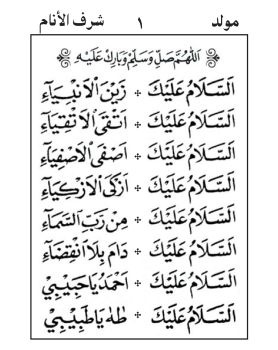 مولد ١ شرف الأنام
اَللّٰهُمَّ صَلِّ وَسَلِّمْ وَبَارِكْ عَلَيْهِ
اَلسَّلَامُ عَلَيْكَ * زَيْنَ الْاَنْبِيَاءِ
اَلسَّلَامُ عَلَيْكَ * اَتْقَى الْاَتْقِيَاءِ
اَلسَّلَامُ عَلَيْكَ * اَصْفَى الْاَصْفِيَاءِ
اَلسَّلَامُ عَلَيْكَ * اَزْكَى الْاَزْكِيَاءِ
اَلسَّلَامُ عَلَيْكَ * مِنْ رَبِّ السَّمَاءِ
اَلسَّلَامُ عَلَيْكَ * دَامَ بِلَا انْقِضَاءِ
اَلسَّلَامُ عَلَيْكَ * اَحْمَدُ يَا حَبِيْبِيْ
اَلسَّلَامُ عَلَيْكَ * طٰهٰ يَا طَبِيْبِيْ